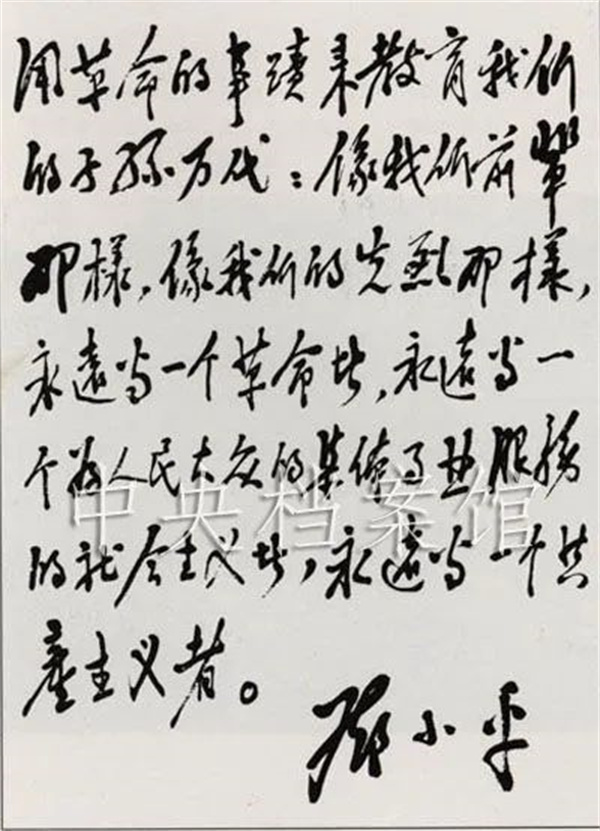 用革命的事蹟来教育我们
的子孙万代：像我们前輩
那樣，像我们的先烈那樣，
永遠当一个革命者，永遠当一
个为人民大众的集体事业服務
的社会主义者，永遠当一个共
產主义者。
邓小平
中央档案馆